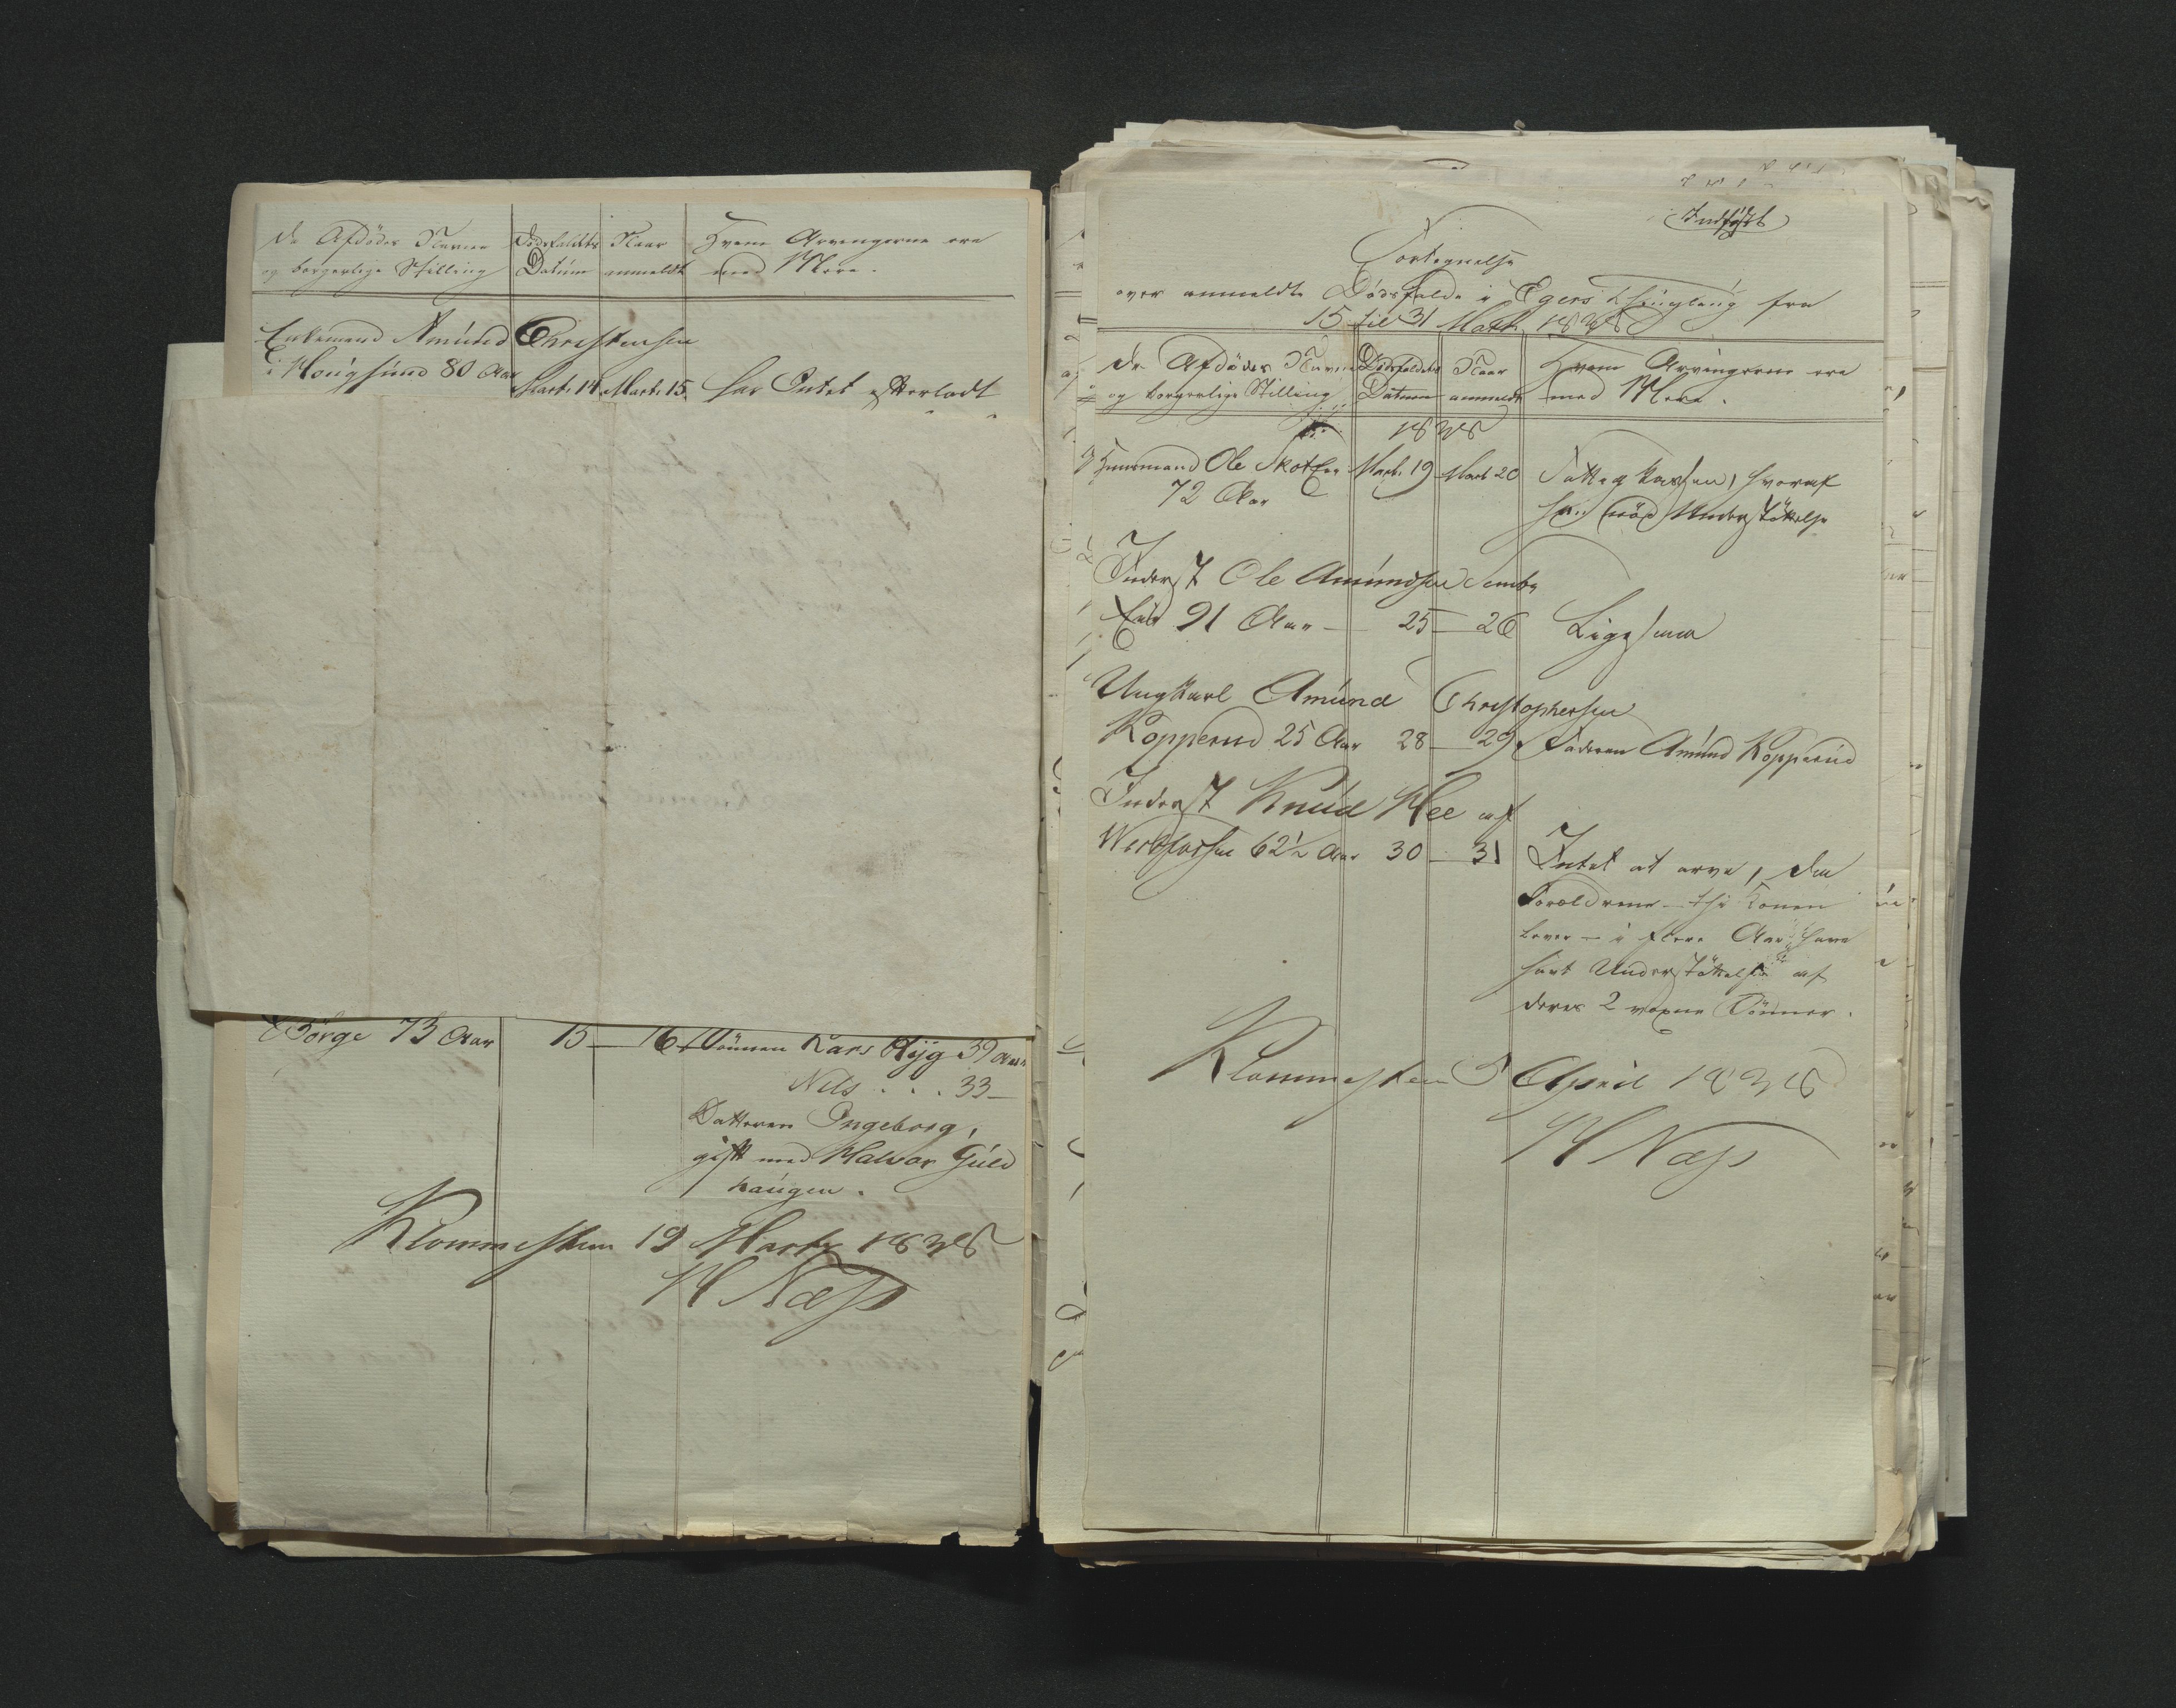 De Afdødes Navne
og borgerlige Stilling
Dødsfaldets
Datum
Naar
anmeldt
Hvem Arvingerne ere
med Mere.
Enkemand Amund Christensen
i Hougsund 80 Aar
Marts 14 Marts 15. har Intet efterladt
Børge 73 Aar 15 — 16 Sønnen Lars Ryg 39 Aar
Nils . . . 33 —
Datteren Ingeborg,
gift med Halvor Guld
haugen.
Klommesteen 19 Marts 1838
H Næss
Indført
Fortegnelse
over anmeldte Dødsfalde i Egers Thinglaug fra
15 til 31 Marts 1838
De Afdødes Navne
og borgerlige Stilling
Dødsfaldets
Datum
Naar
anmeldt
Hvem Arvingerne ere
med Mere.
1838
Huusmand Ole Skotten Marts 19 Marts 20 Fattigkassen, hvoraf
72 Aar
han nød Understøttelse
Inderst Ole Amundsen Sembs
Eid 91 Aar — 25 — 26 Ligesaa
Ungkarl Amund Christophersen
Kopperud 25 Aar 28 — 29. Faderen Amund Kopperud
Inderst Knud Moe af
62½ Aar 30 — 31 Intet at arve, da
Forældrene — thi Konen
lever — i flere Aar have
havt Understøttelse af
deres 2 voxne Sønner.
Klommesteen 3 April 1838
H Næss